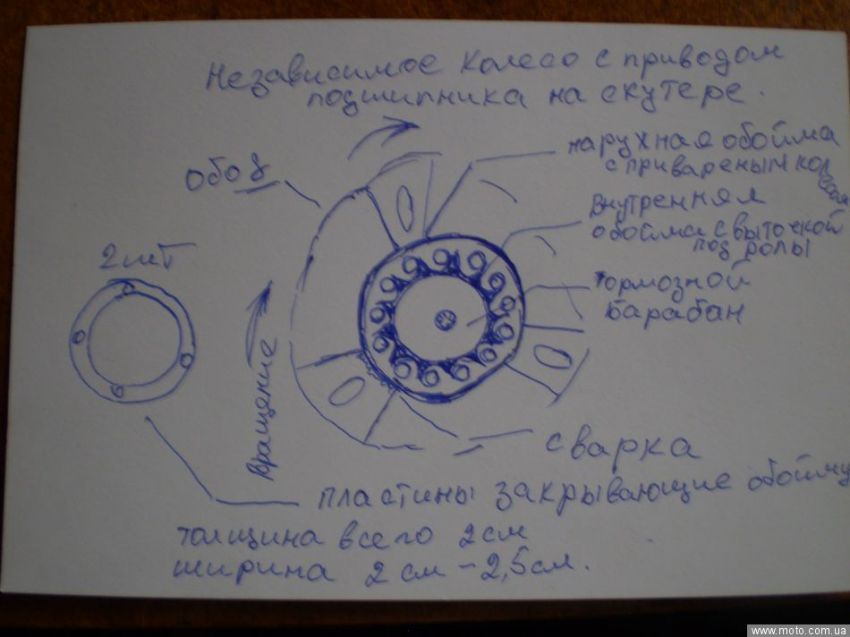 Независимое колесо с приводом
подшипника на скутере.
обод
нарухная обойма
с привареным колесом
внутренняя
обойма с выточкой
под ролы
2 шт
тормозной
барабан
Вращение
сварка
пластины закрывающие обойму
толщина всего 2 см
ширина 2 см – 2,5 см.
www.moto.com.ua